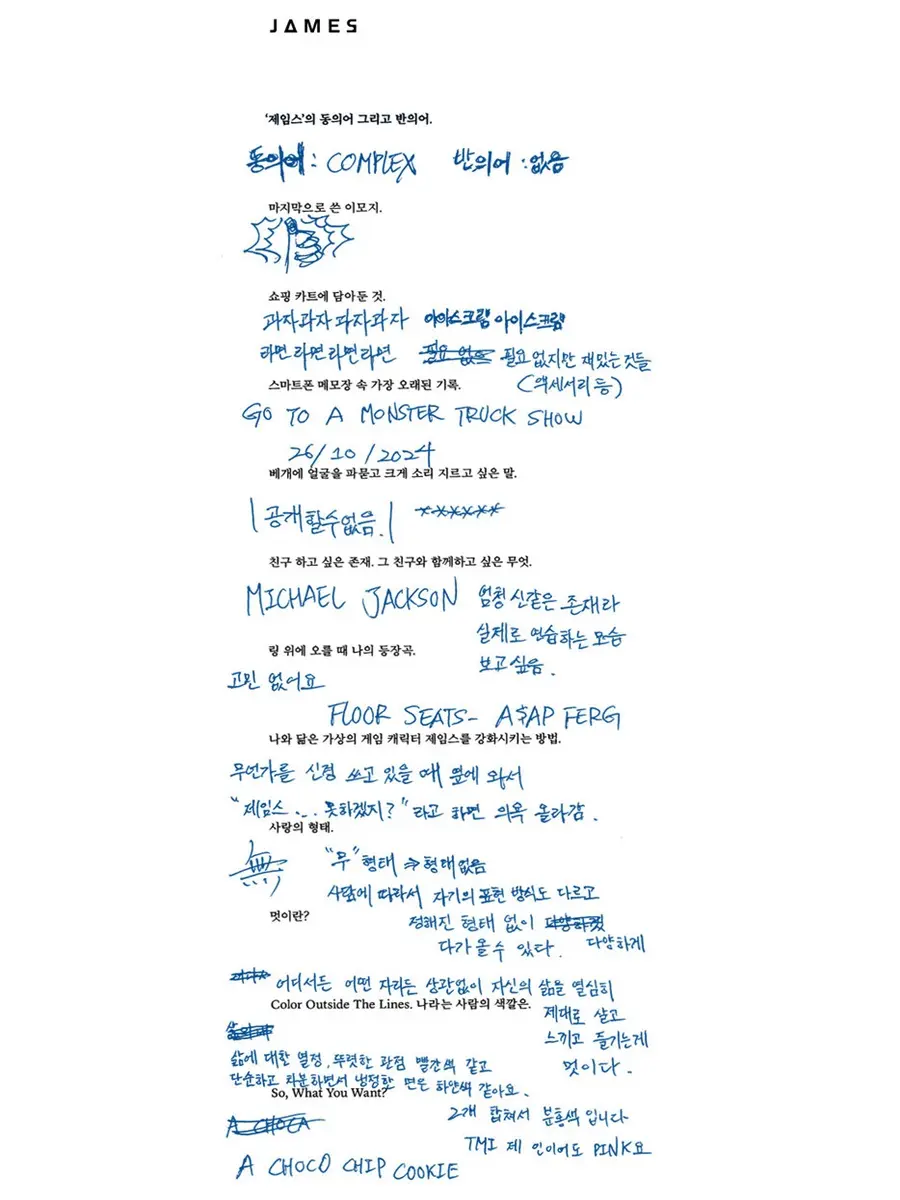 JAMES
‘제임스’의 동의어 그리고 반의어.
동의어 : COMPLEX 반의어 : 없음
마지막으로 쓴 이모지.
쇼핑 카트에 담아둔 것.
과자과자과자과자 아이스크림 아이스크림
라면 라면 라면 라면 필요 없으 필요 없지만 재밌는 것들
(액세서리 등)
스마트폰 메모장 속 가장 오래된 기록.
GO TO A MONSTER TRUCK SHOW
26/10/2024
베개에 얼굴을 파묻고 크게 소리 지르고 싶은 말.
| 공개할수없음. | ******
친구 하고 싶은 존재. 그 친구와 함께하고 싶은 무엇.
MICHAEL JACKSON 엄청 신같은 존재라
실제로 연습하는 모습
보고싶음.
링 위에 오를 때 나의 등장곡.
고민 없어요
FLOOR SEATS - A$AP FERG
나와 닮은 가상의 게임 캐릭터 제임스를 강화시키는 방법.
무언가를 신경 쓰고 있을 때 옆에 와서
“제임스... 못하겠지?” 라고 하면 의욕 올라감.
사랑의 형태.
無 “무” 형태 → 형태없음
사람에 따라서 자기의 표현 방식도 다르고
정해진 형태 없이 다양하게
다가올수 있다. 다양하게
멋이란?
어디서든 어떤 자리든 상관없이 자신의 삶을 열심히
제대로 살고
느끼고 즐기는게
멋이다.
Color Outside The Lines. 나라는 사람의 색깔은.
삶에 대한 열정, 뚜렷한 관점 빨간색 같고
단순하고 차분하면서 냉정한 면은 하얀색 같아요.
2개 합쳐서 분홍색 입니다
TMI 제 인이어도 PINK요
So, What You Want?
A CHOCA
A CHOCO CHIP COOKIE